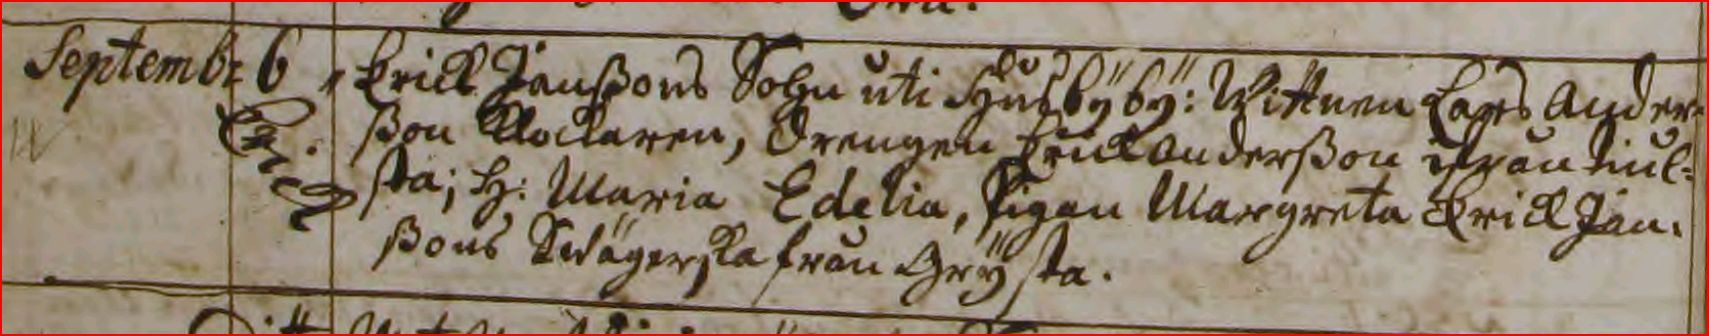 Septemb: 6 Erick Janßons Sohn uti Husbÿbÿ: Wittnen Lars Ander-
ßon Klockaren, Drengen Erick Anderßon ifrån
sta; H: Maria Edelia, Pigan Margreta Erick Jan-
ßons Swägerska från Grÿsta.